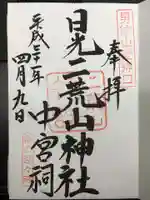 奉拝
日光二荒山神社
中宮祠
平成三十一年
四月九日